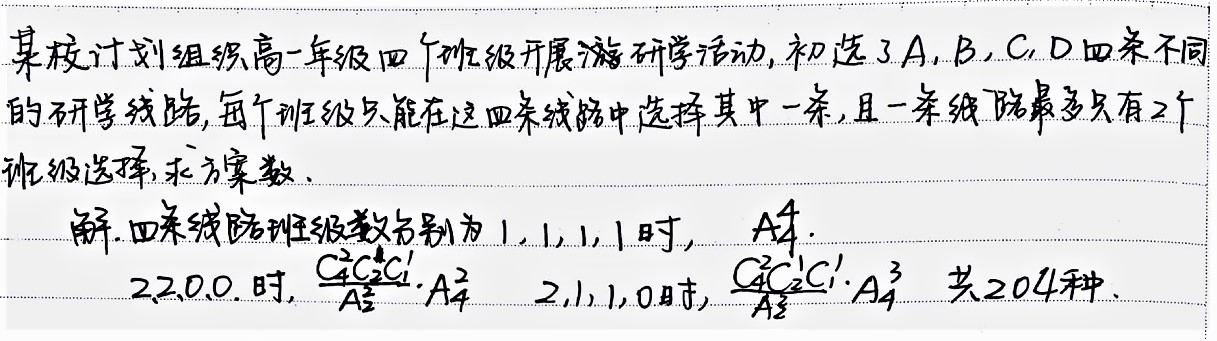 某校计划组织高一年级四个班级开展游研学活动,初选了A,B,C,D四条不同
的研学线路,每个班级只能在这四条线路中选择其中一条,且一条线路最多只有2个
班级选择,求方案数.
解.四条线路班级数分别为1,1,1,1时, A₄⁴.
2,2,0,0.时, \frac{C_4^2C_2^1C_1^1}{A_2^2}·A_4^2 2,1,1,0时, \frac{C_4^2C_2^1C_1^1}{A_2^2}·A_4^3 共204种.